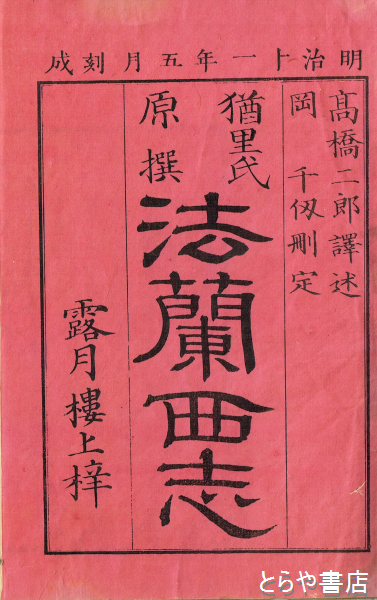 明治十一年五月刻成
高橋二郎譯述
岡千仭刪定
猶里氏
原撰
法蘭西志
露月樓上梓
とらや書店